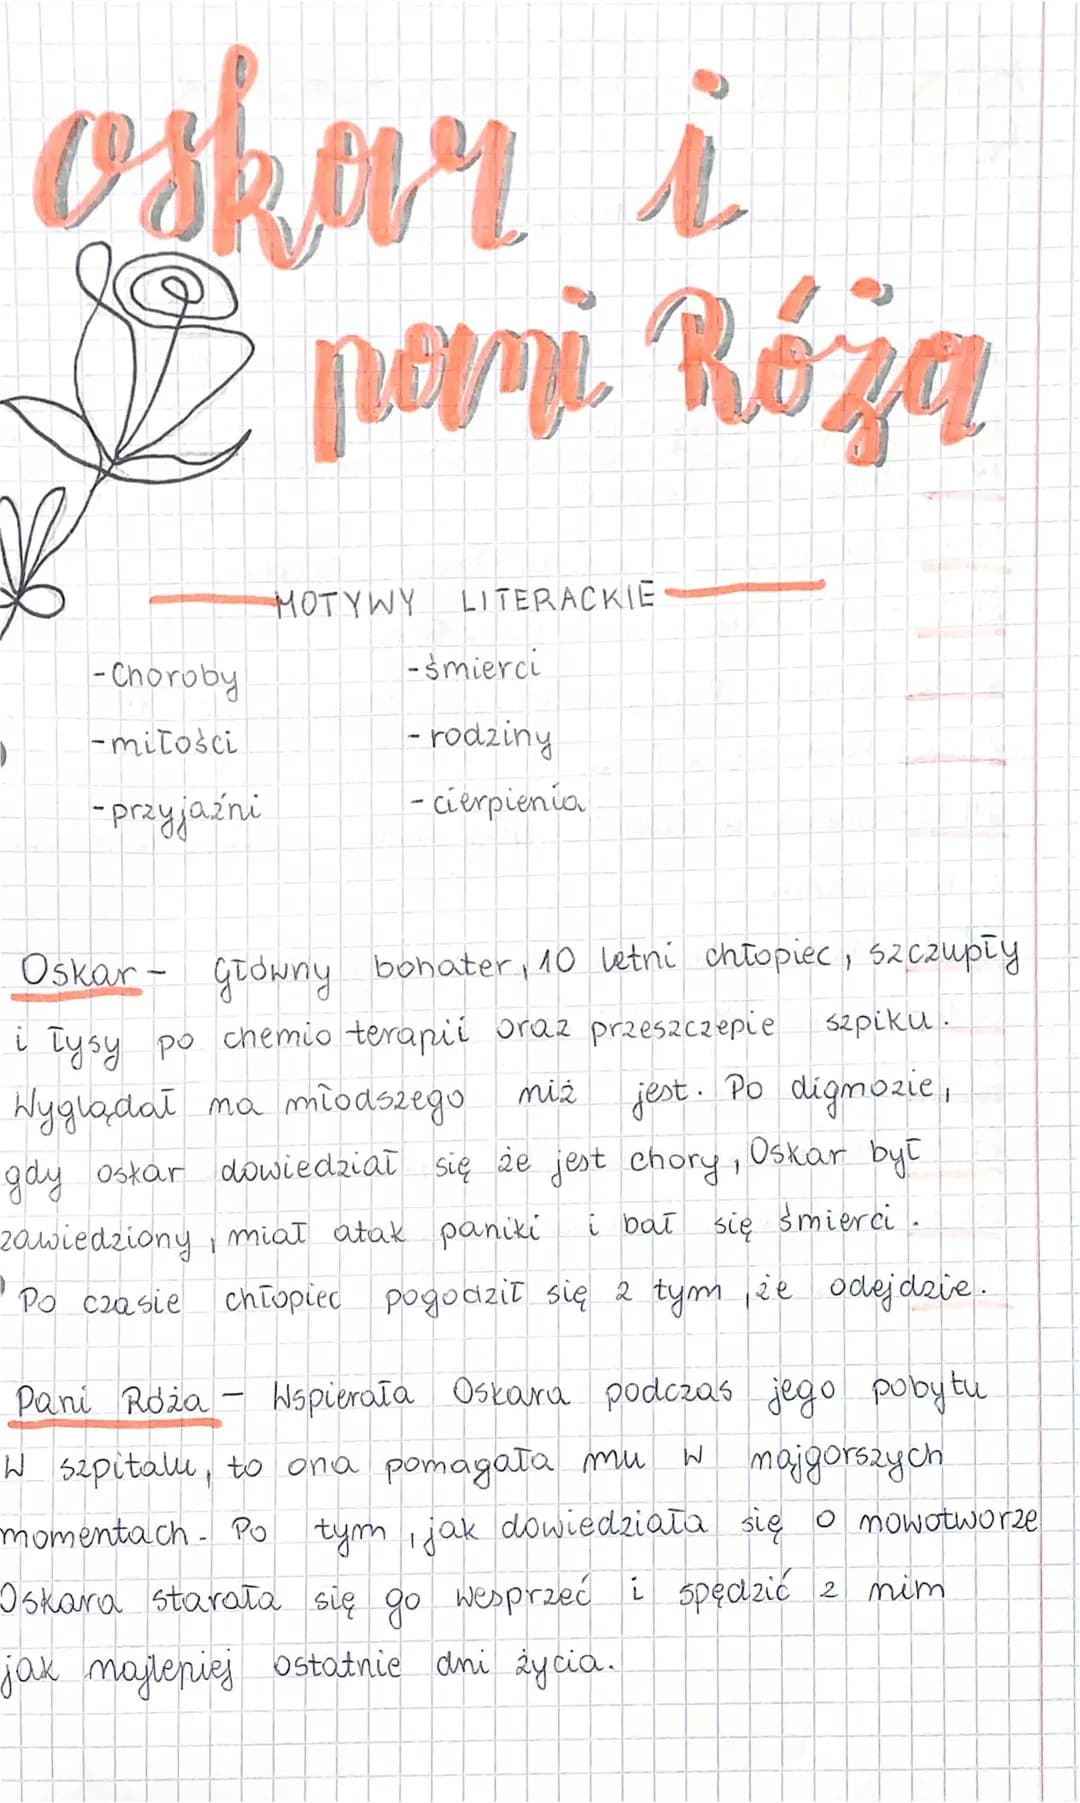 oskar i
pani Róża
MOTYWY LITERACKIE
-Choroby -śmierci
-miłości -rodziny
-przyjaźni -cierpienia
Oskar - Główny bohater, 10 letni chłopiec, szczupły
i łysy po chemio terapii oraz przeszczepie szpiku.
Wyglądał na młodszego niż jest. Po dignozie,
gdy oskar dowiedział się że jest chory, Oskar był
zawiedziony, miał atak paniki i bał się śmierci.
Po czasie chłopiec pogodził się z tym, że odejdzie.
Pani Róża - Wspierała Oskara podczas jego pobytu
w szpitalu, to ona pomagała mu w najgorszych
momentach. Po tym, jak dowiedziała się o nowotworze
Oskara starała się go wesprzeć i spędzić z nim
jak najlepiej ostatnie dni życia.